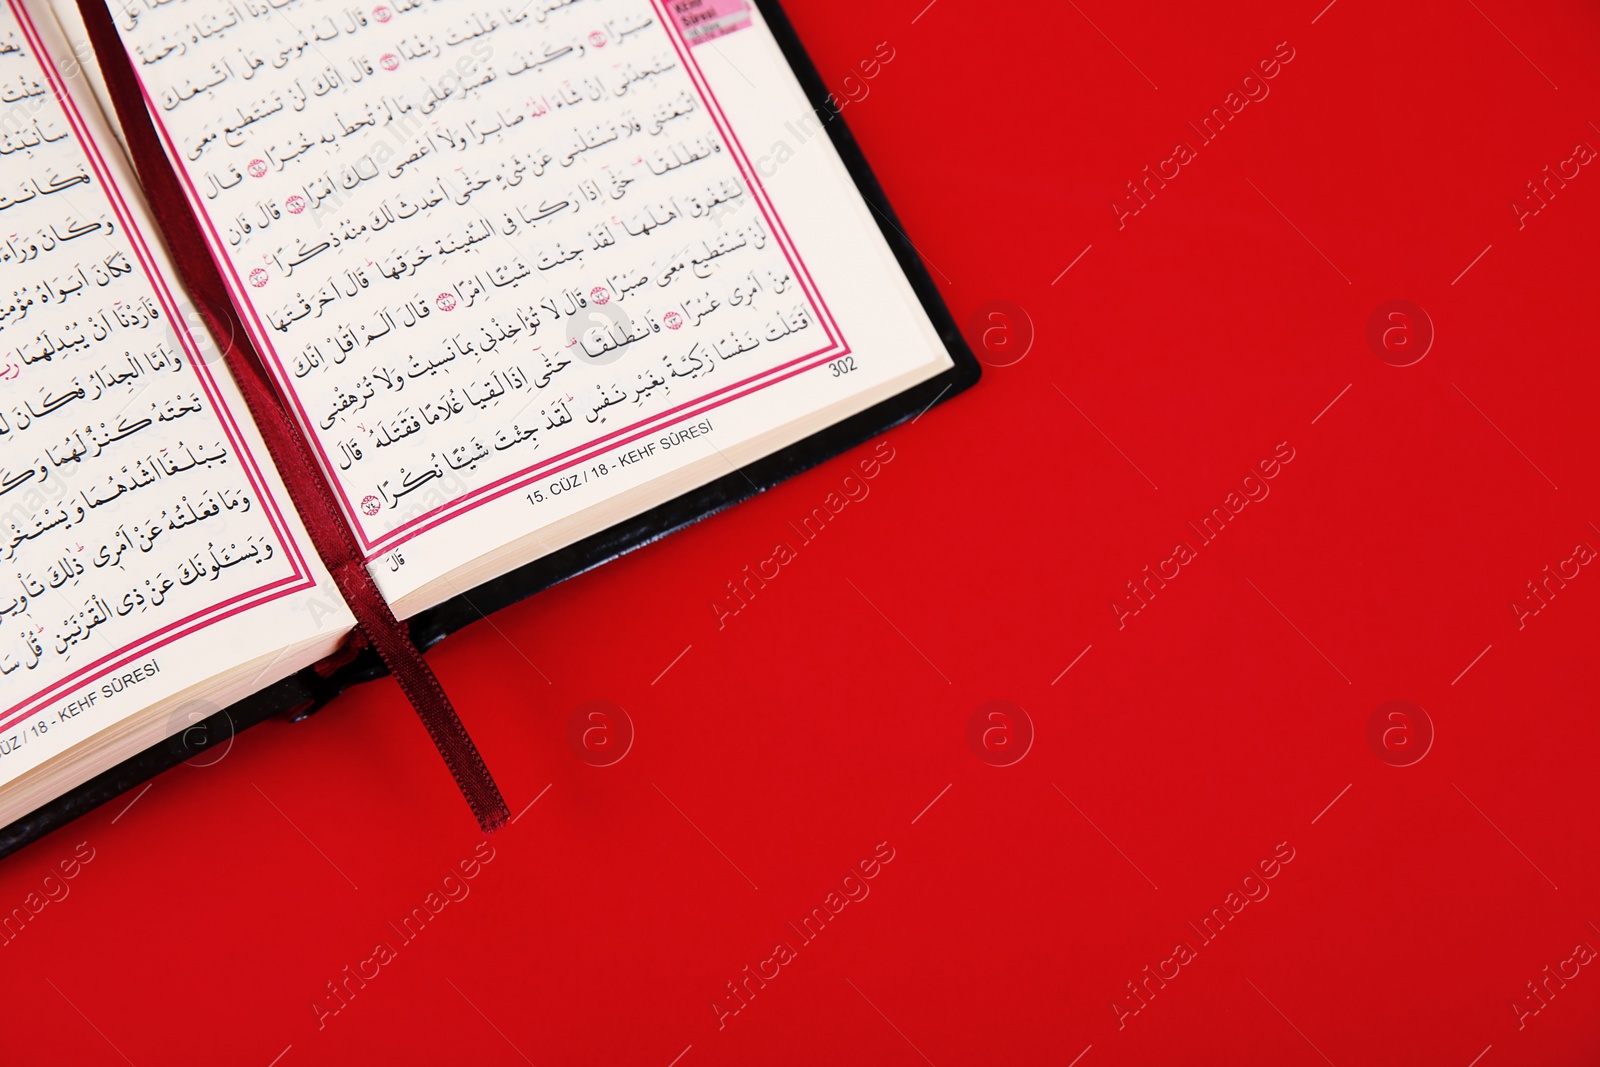 Kehf
Sûresi
رَحْمَةً
قَالَ لَهُ مُوسٰى هَلْ اَتَّبِعُكَ
مِمَّا عُلِّمْتَ رُشْدًا ﴿٦٦﴾ قَالَ اِنَّكَ لَنْ تَسْتَطٖيعَ مَعِىَ
صَبْرًا ﴿٦٧﴾ وَكَيْفَ تَصْبِرُ عَلٰى مَا لَمْ تُحِطْ بِهٖ خُبْرًا ﴿٦٨﴾ قَالَ
سَتَجِدُنٖٓى اِنْ شَٓاءَ اللّٰهُ صَابِرًا وَلَٓا اَعْصٖى لَكَ اَمْرًا ﴿٦٩﴾ قَالَ فَاِنِ
اتَّبَعْتَنٖى فَلَا تَسْـَٔلْنٖى عَنْ شَىْءٍ حَتّٰٓى اُحْدِثَ لَكَ مِنْهُ ذِكْرًا ﴿٧٠﴾
فَانْطَلَقَا حَتّٰٓى اِذَا رَكِبَا فِى السَّفٖينَةِ خَرَقَهَا قَالَ اَخَرَقْتَهَا
لِتُغْرِقَ اَهْلَهَا لَقَدْ جِئْتَ شَيْـًٔا اِمْرًا ﴿٧١﴾ قَالَ اَلَمْ اَقُلْ اِنَّكَ
لَنْ تَسْتَطٖيعَ مَعِىَ صَبْرًا ﴿٧٢﴾ قَالَ لَا تُؤَاخِذْنٖى بِمَا نَسٖيتُ وَلَا تُرْهِقْنٖى
مِنْ اَمْرٖى عُسْرًا ﴿٧٣﴾ فَانْطَلَقَا حَتّٰٓى اِذَا لَقِيَا غُلَامًا فَقَتَلَهُ قَالَ
اَقَتَلْتَ نَفْسًا زَكِيَّةً بِغَيْرِ نَفْسٍ لَقَدْ جِئْتَ شَيْـًٔا نُكْرًا ﴿٧٤﴾
302
15. CÜZ / 18 - KEHF SÛRESİ
قَالَ
شِئْتَ
سَاُنَبِّئُكَ
فَكَانَتْ
وَكَانَ وَرَٓاءَهُمْ
فَكَانَ اَبَوَاهُ
فَاَرَدْنَٓا اَنْ يُبْدِلَهُمَا
وَاَمَّا الْجِدَارُ فَكَانَ
تَحْتَهُ كَنْزٌ لَهُمَا
يَبْلُغَٓا اَشُدَّهُمَا وَيَسْتَخْرِجَا
وَمَا فَعَلْتُهُ عَنْ اَمْرٖى ذٰلِكَ تَأْوٖيلُ
وَيَسْـَٔلُونَكَ عَنْ ذِى الْقَرْنَيْنِ قُلْ
CÜZ / 18 - KEHF SÛRESİ
Africa Images
a